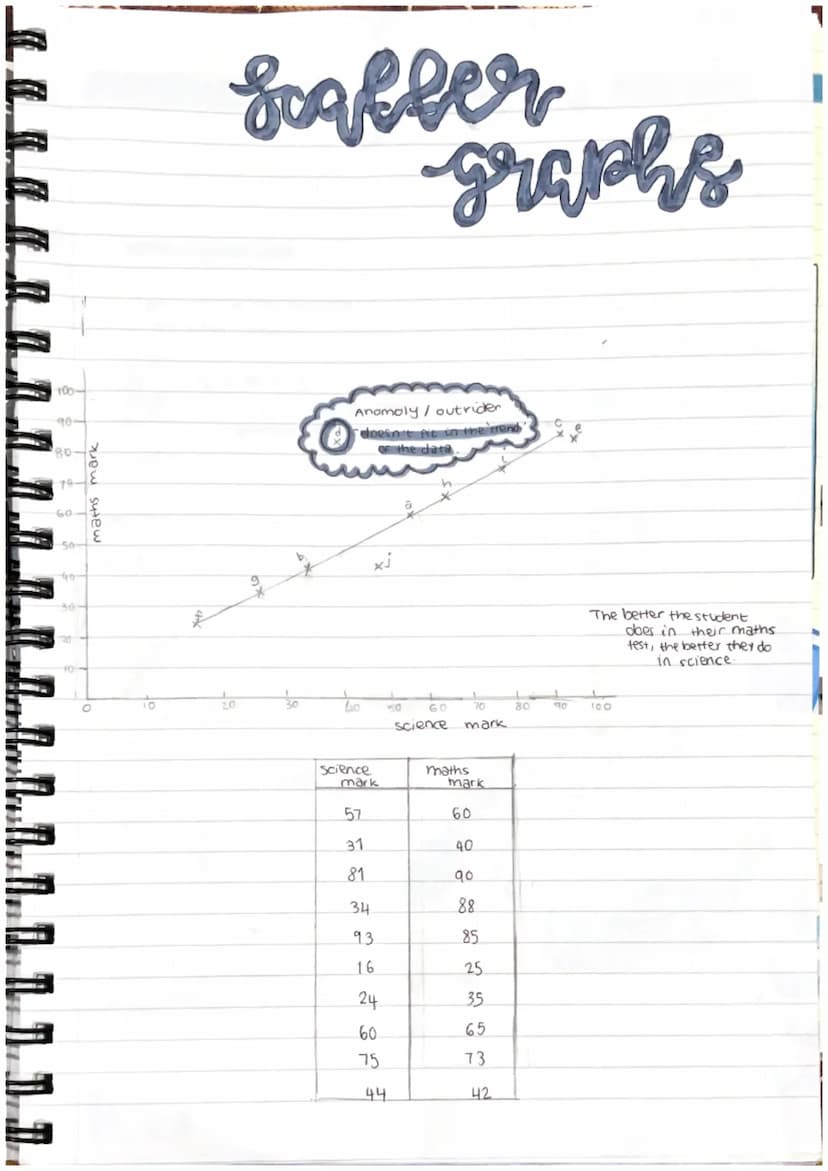 Scatter
graphs
100
Anomoly / outrider
90
d
doesn't fit in the trend
c
e
80
of the data.
maths mark
i
70
h
60
a
50
b
j
40
g
30
f
20
10
The better the student
does in their maths
test, the better they do
in science.
0 10 20 30 40 50 60 70 80 90 100
science mark
science mark maths mark
57 60
31 40
81 90
34 88
93 85
16 25
24 35
60 65
75 73
44 42